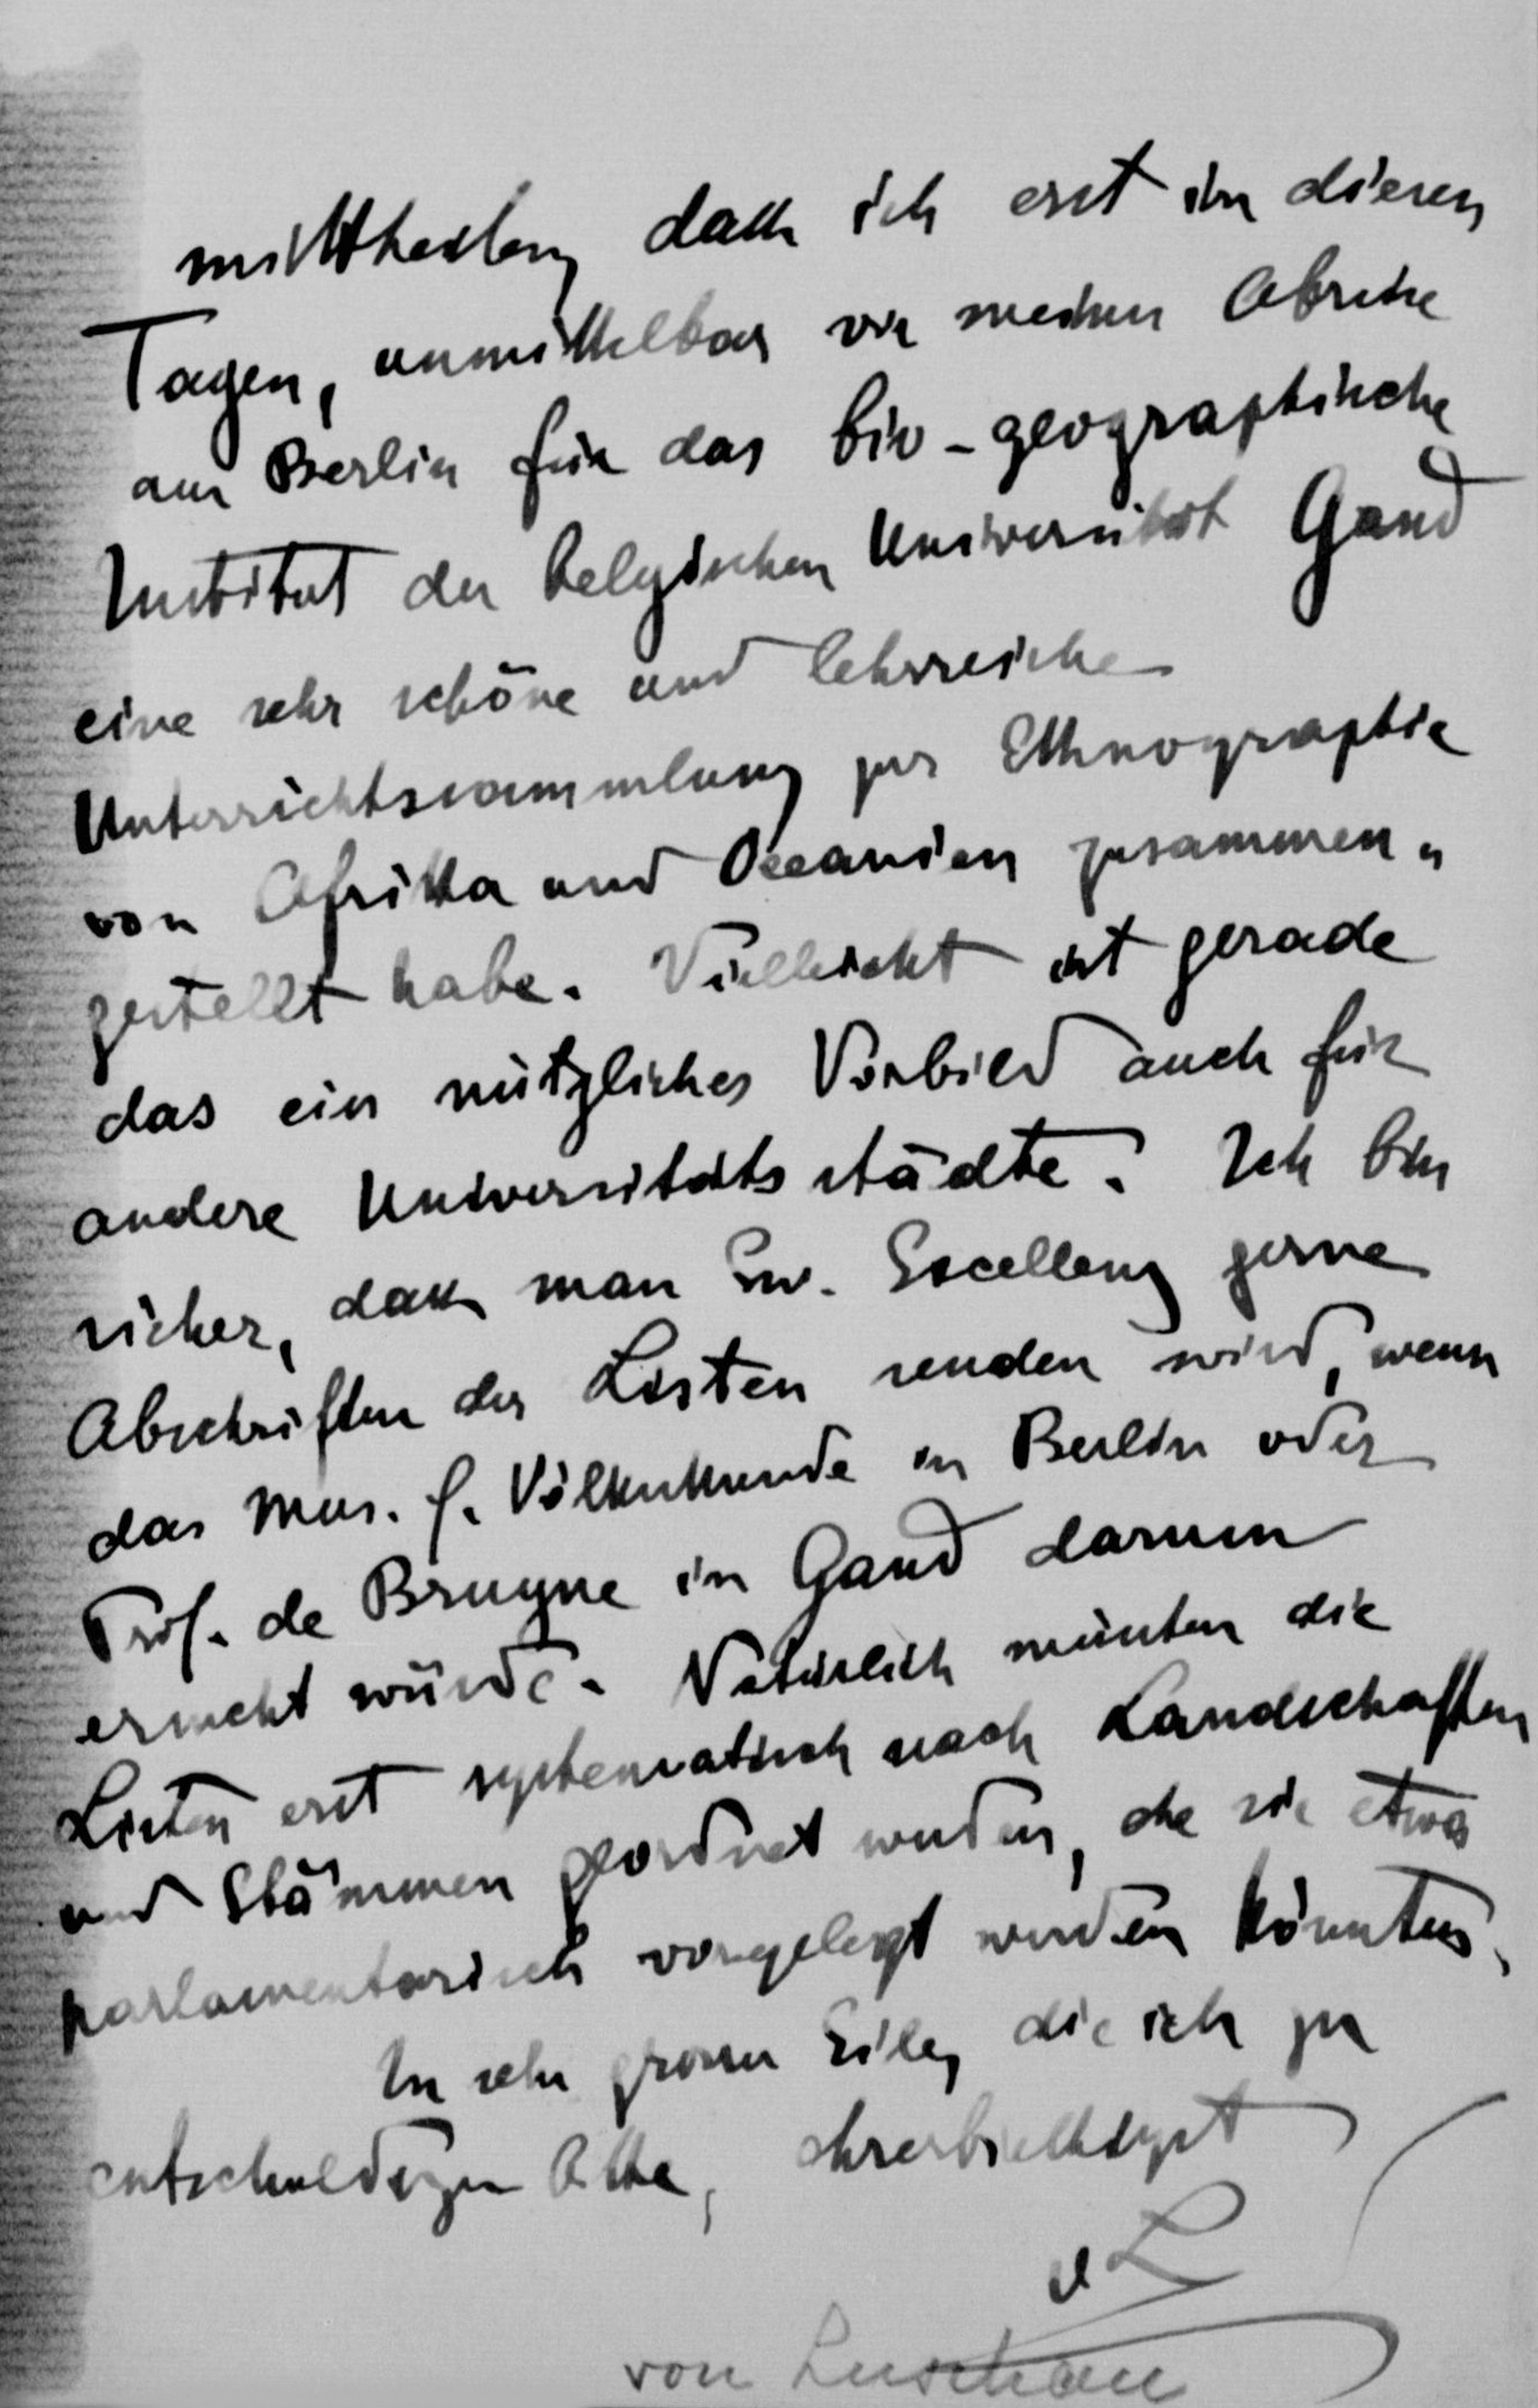 mittheilen, dass ich erst in diesen
Tagen, unmittelbar vor meiner Abreise
aus Berlin für das bio-geographische
Institut der belgischen Universität Gand
eine sehr schöne und lehrreiche
Unterrichtssammlung zur Ethnographie
von Afrika und Oceanien zusammen-
gestellt habe. Vielleicht ist gerade
das ein nützliches Vorbild auch für
andere Universitätsstädte. Ich bin
sicher, dass man Ew. Excellenz gerne
Abschriften der Listen senden wird, wenn
das Mus. f. Völkerkunde in Berlin oder
Prof. de Bruyne in Gand darum
ersucht würde. Natürlich müssten die
Listen erst systematisch nach Landschaften
und Stämmen geordnet werden, ehe sie etwa
parlamentarisch vorgelegt werden könnten.
In sehr grosser Eile, die ich zu
entschuldigen bitte, ehrerbietigst
v L
von Luschan